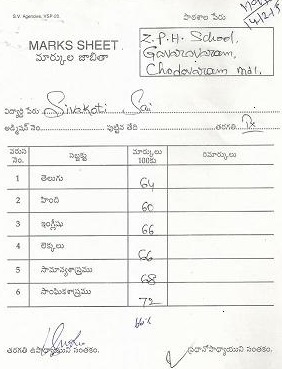 S.V. Agencies, VSP-20.
పాఠశాల పేరు
MARKS SHEET
మార్కుల జాబితా
Z.P.H. School,
Gavaravaram,
Chodavaram Mdl.
విద్యార్థి పేరు Sivakoti Sai
అడ్మిషన్ నెం. పుట్టిన తేది తరగతి IX
వరుస నెం. సబ్జక్టు మార్కులు 100కు రిమార్కులు
1 తెలుగు 64
2 హింది 60
3 ఇంగ్లీషు 66
4 లెక్కలు 66
5 సామాన్యశాస్త్రము 68
6 సాంఘికశాస్త్రము 72
66%
తరగతి ఉపాధ్యాయుని సంతకం. ప్రధానోపాధ్యాయుని సంతకం.